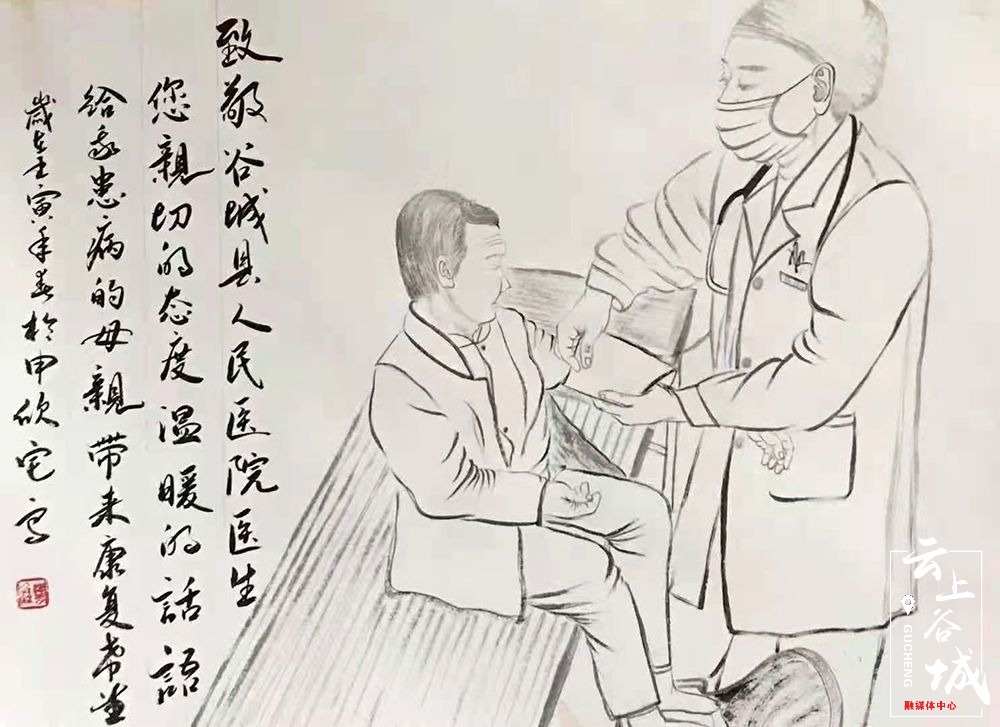 致敬谷城县人民医院医生
您親切的态度温暖的話語
给我患病的母親带来康复希望
歲在壬寅年春於申欣宅写
云上谷城
GUCHENG
融媒体中心